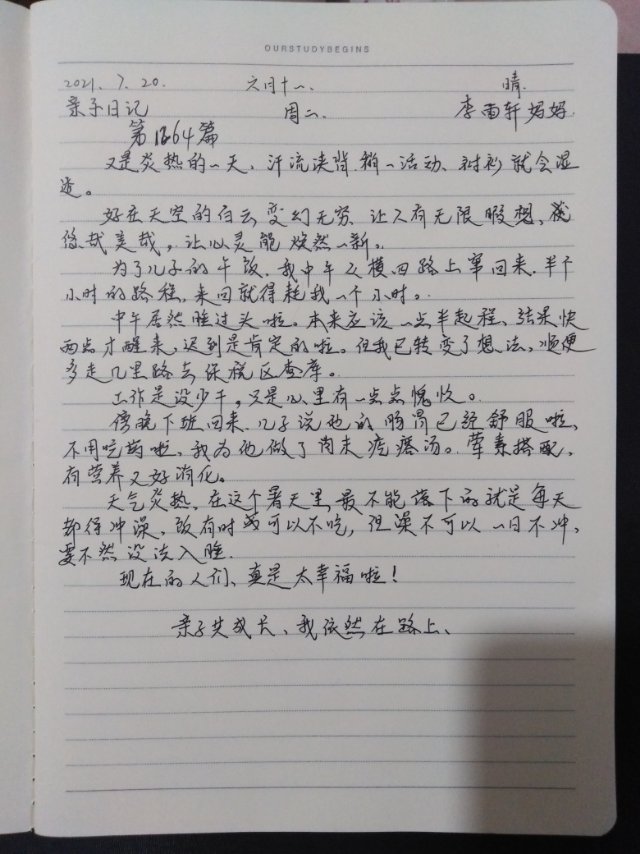 OURSTUDYBEGINS
2021. 7. 20. 六月十一. 晴.
亲子日记 周二. 李雨轩妈妈.
第1264篇
又是炎热的一天、汗流浃背.稍一活动、衬衫就会湿
透。
好在天空的白云变幻无穷.让人有无限暇想、
悠哉美哉,让心灵能焕然一新。
为了儿子的午饭.我中午又横四路上窜回来.半个
小时的路程,来回就得耗我一个小时。
中午居然睡过头啦。本来应该一点半起程、结果快
两点才醒来,迟到是肯定的啦。但我已转变了想法,顺便
多走几里路去保税区查库。
工作是没少干,又是心里有一点点愧疚。
傍晚下班回来.儿子说他的肠胃已经舒服啦,
不用吃药啦,我为他做了肉末疙瘩汤。荤素搭配,
有营养又好消化。
天气炎热、在这个暑天里最不能落下的就是每天
都得冲澡、饭有时或可以不吃,但澡不可以一日不冲,
要不然没法入睡.
现在的人们、真是太幸福啦!
亲子共成长、我依然在路上、